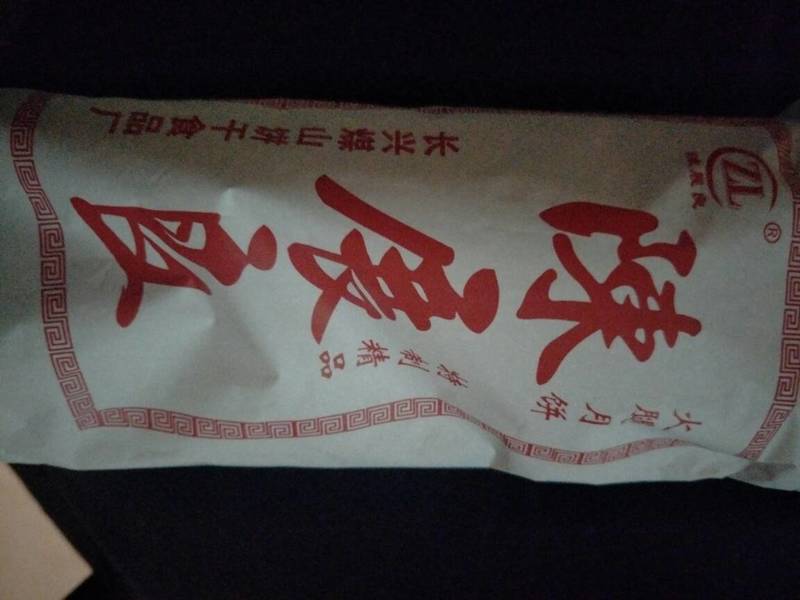 ZL
陳慶良
®
陳慶良
长兴煤山饼干食品厂
火腿月饼
特制精品